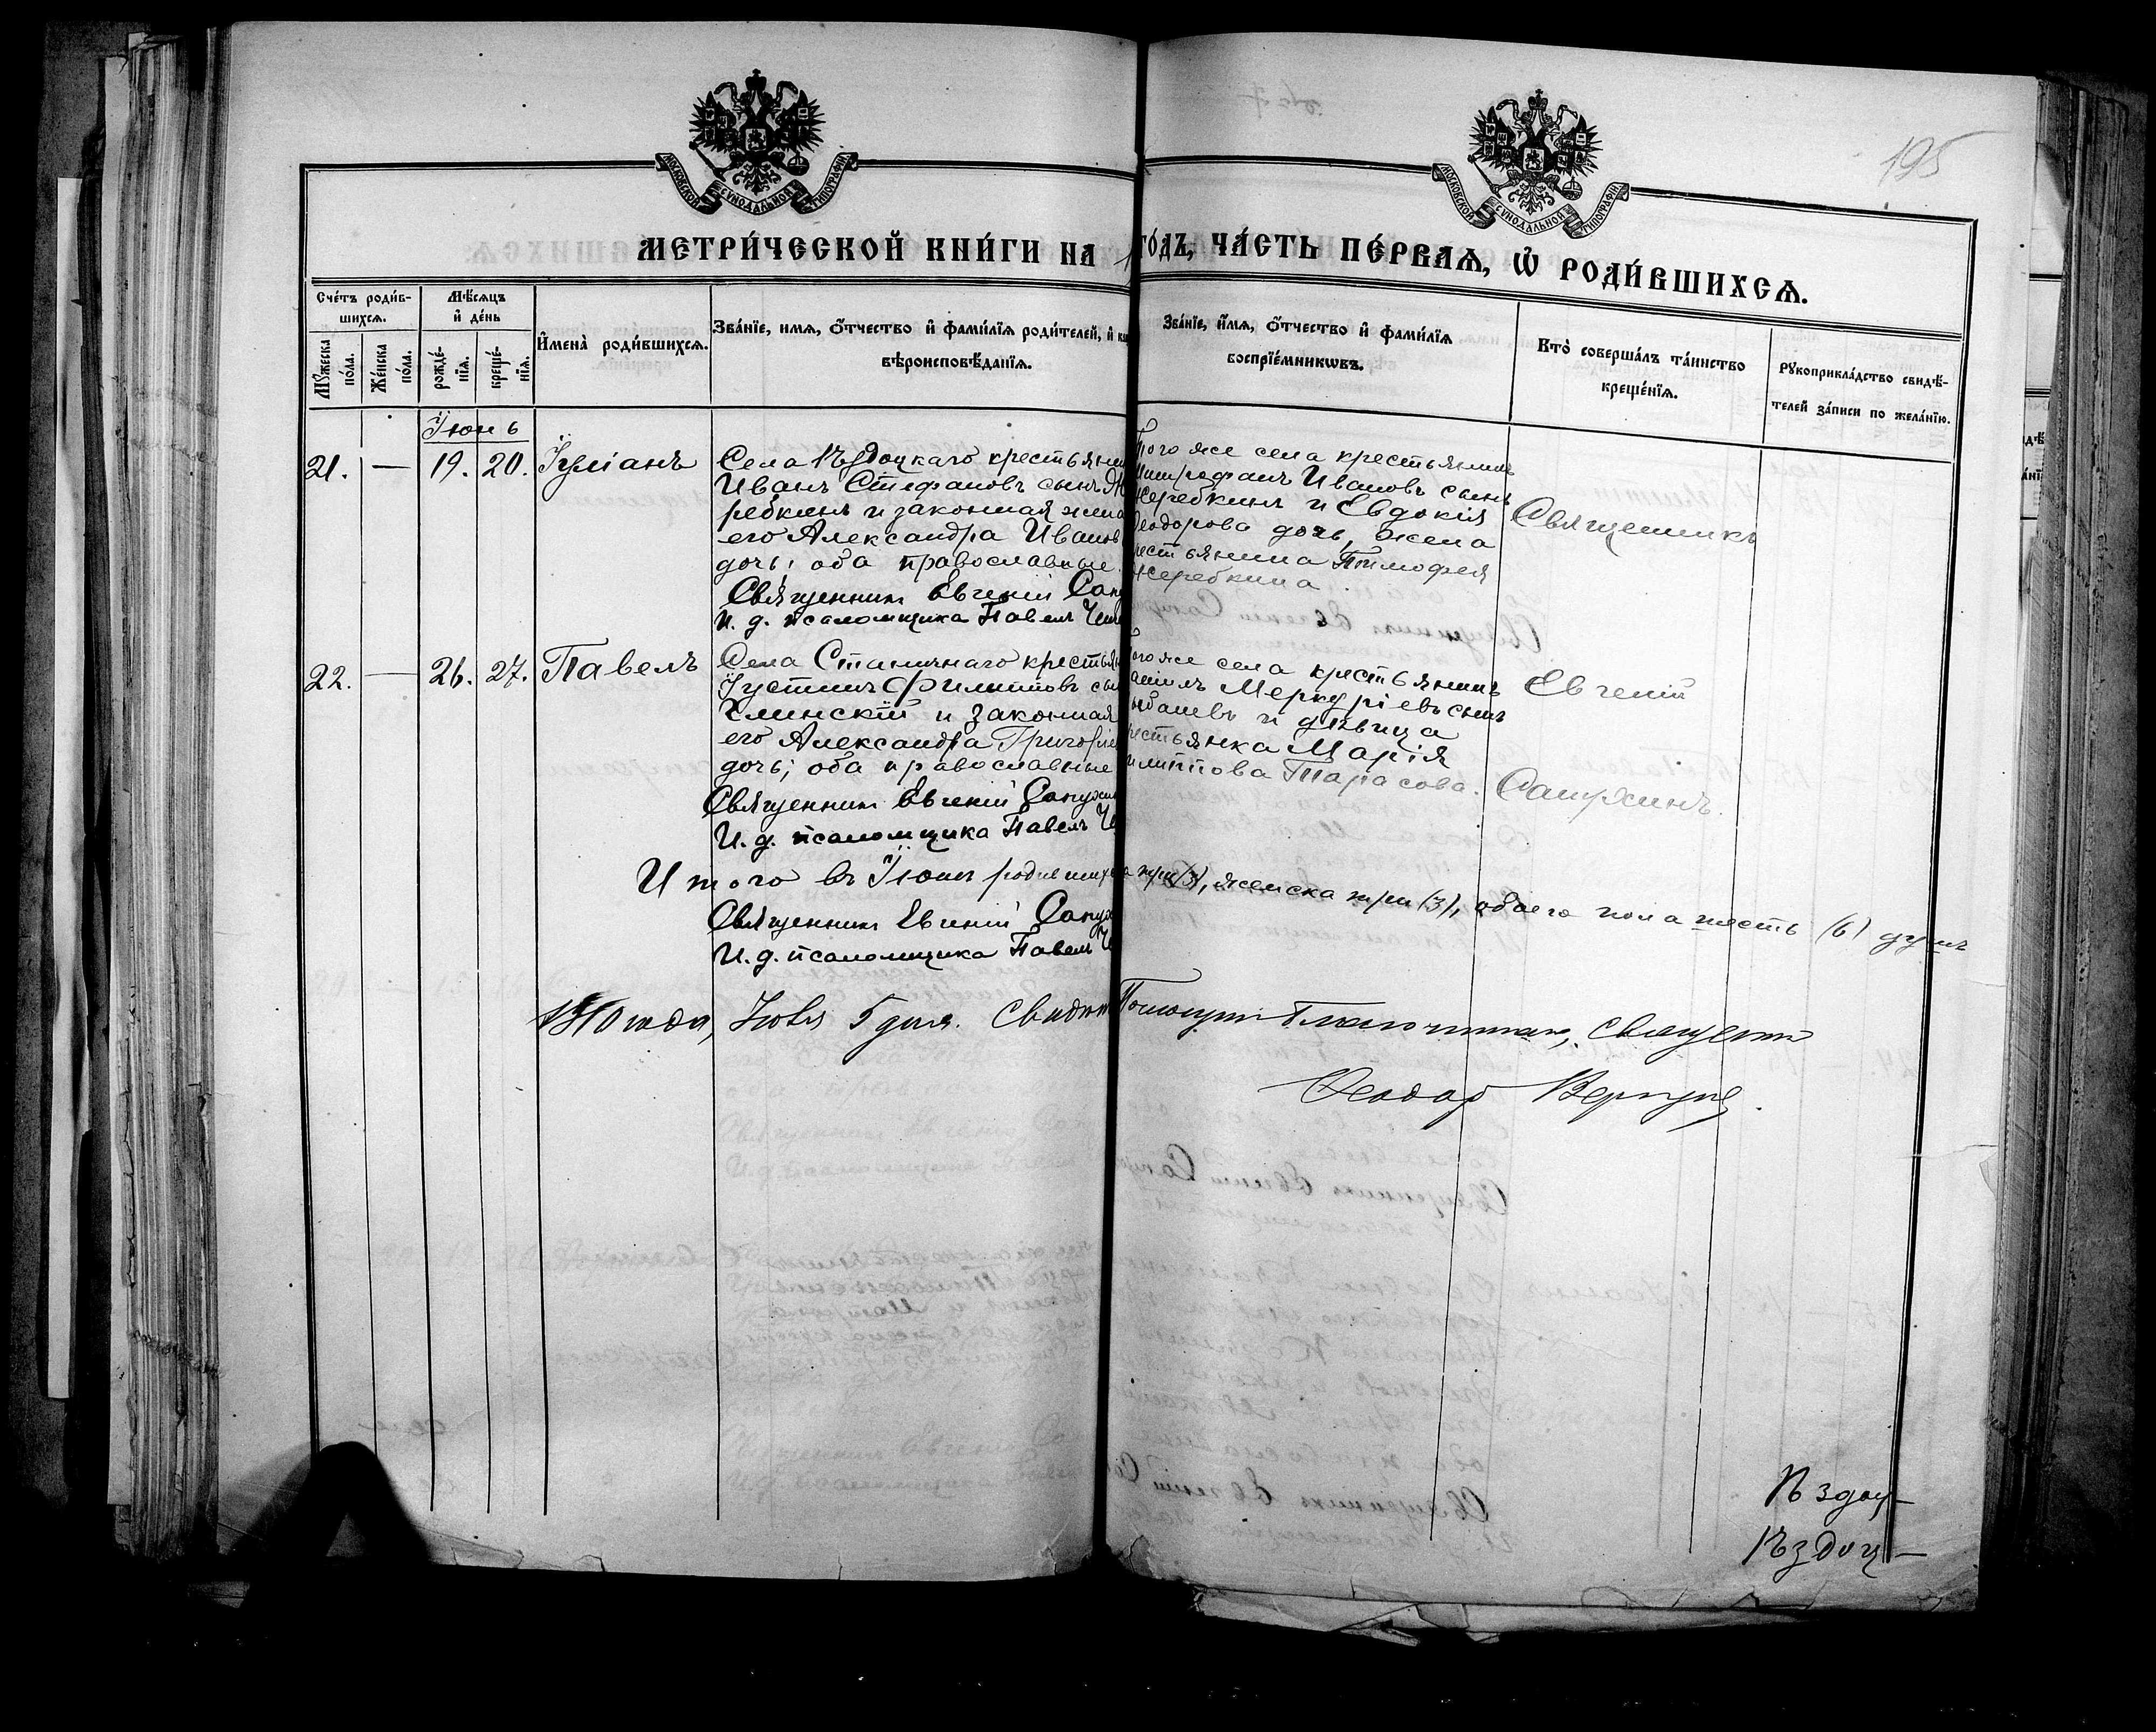 195
МОСКОВСКОЙ СѴНОДАЛЬНОЙ ТИПОГРАФІИ
МОСКОВСКОЙ СѴНОДАЛЬНОЙ ТИПОГРАФІИ
МЕТРИ́ЧЕСКОЙ КНИ́ГИ НА
ГО́ДЪ, ЧА́СТЬ ПЕ́РВАѦ, Ѡ҆ РОДИ́ВШИХСѦ.
Сче́тъ роди́в-
шихсѧ.
Мꙋ́жеска по́ла.
Же́нска по́ла.
Мѣ́сѧцъ
и҆ де́нь
рожде́-
нїѧ.
креще́-
нїѧ.
И҆мена̀ роди́вшихсѧ.
Зва́нїе, имѧ, ѻ҆́тчество и҆ фами́лїѧ роди́телей, и҆
вѣроисповѣ́данїѧ.
Зва́нїе, и҆́мѧ, ѻ҆́тчество и҆ фами́лїѧ
воспрїе́мникѡвъ.
Кто̀ соверша́лъ та́инство
креще́нїѧ.
Рꙋкоприкла́дство свидѣ́-
телей за́писи по жела́нїю.
Іюнь
21. — 19. 20. Іуліанъ
Села Ѣздоцкаго крестьянин
Иванъ Стефановъ сынъ Же
ребкинъ и законная жена
его Александра Иванов
дочь; оба православные.
Священникъ Евгеній Сапу
И. д. псаломщика Павелъ
Того же села крестьянинъ
Митрофанъ Ивановъ сынъ
Жеребкинъ и Евдокія
Ѳеодорова дочь, жена
крестьянина Тимофея
Жеребкина.
Священникъ
22. — 26. 27. Павелъ
Села Станичнаго крестьян
Іустинъ Филипповъ сы
Глинскій и законная
его Александра Григорье
дочь; оба православные
Священникъ Евгеній Сапухин
И. д. псаломщика Павелъ
того же села крестьянинъ
Меркуріевъ сынъ
и дѣвица
крестьянка Марія
Филиппова Тарасова.
Евгеній
Сапухинъ.
Итого въ Іюнѣ родившихся три (3), женска три (3), обоего пола шесть (6) душъ
Священникъ Евгеній Сапух
И. д. псаломщика Павелъ
1910 года, Іюля 5 дня. Помощн Благочиннаго, Священн
Ѳеодоръ
Ѣздоц-
Ѣздоц-